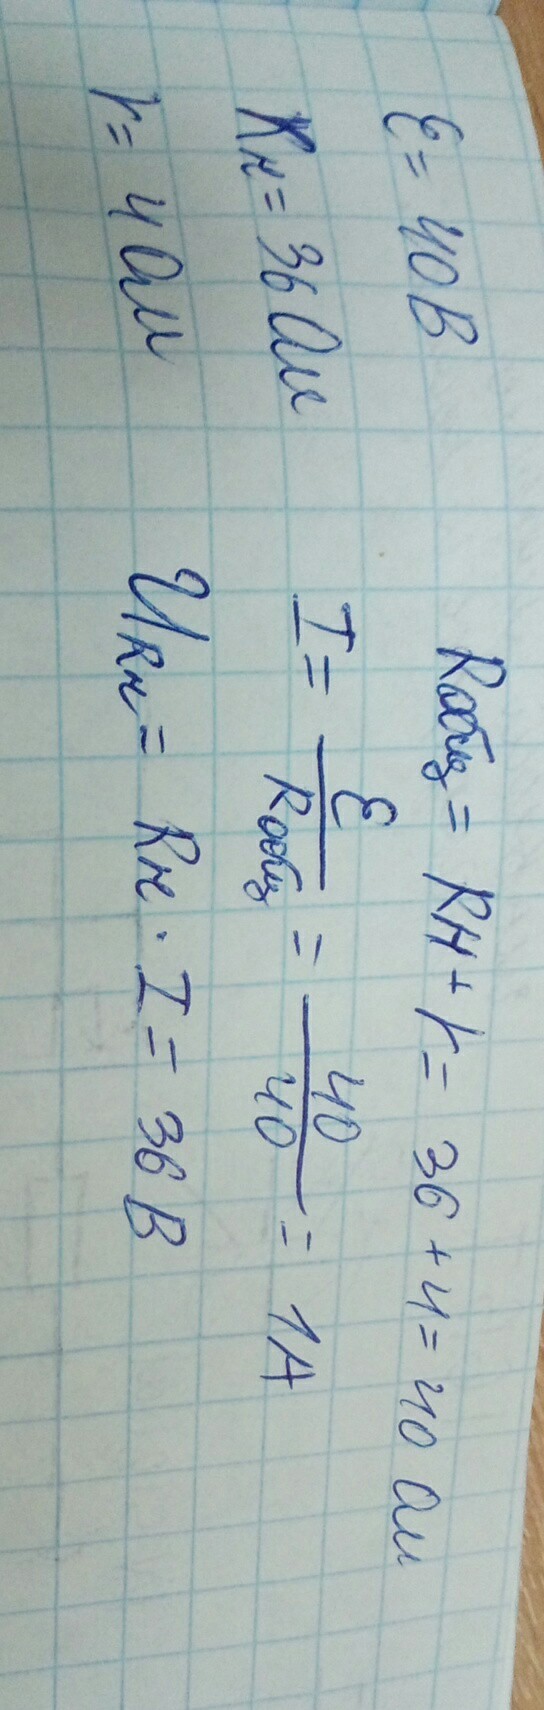 Ɛ = 40 В
Rн = 36 Ом
r = 4 Ом
Rобщ = Rн + r = 36 + 4 = 40 Ом
I = Ɛ / Rобщ = 40 / 40 = 1 А
URн = Rн · I = 36 В